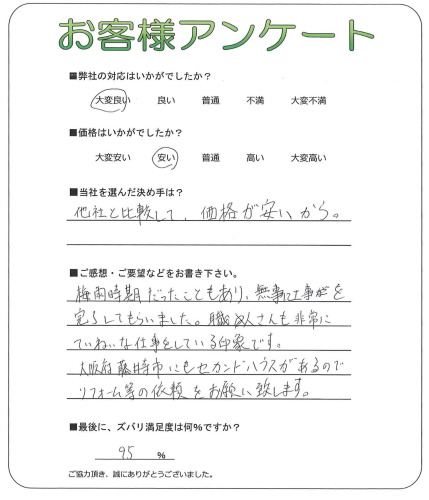 お客様アンケート
■弊社の対応はいかがでしたか？
大変良い 良い 普通 不満 大変不満
■価格はいかがでしたか？
大変安い 安い 普通 高い 大変高い
■当社を選んだ決め手は？
他社と比較して、価格が安いから。
■ご感想・ご要望などをお書き下さい。
梅雨時期だったこともあり、無事工事を
完了してもらいました。職人さんも非常に
ていねいな仕事をしている印象です。
大阪府藤井寺市にもセカンドハウスがあるので
リフォーム等の依頼をお願い致します。
■最後に、ズバリ満足度は何%ですか？
95 %
ご協力頂き、誠にありがとうございました。